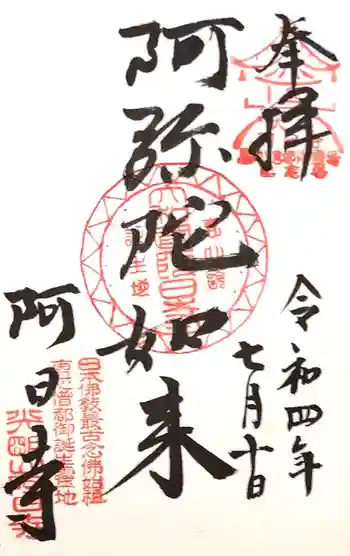 奉拝
令和四年
七月十日
阿弥陀如来
日本佛教最古念佛始祖
恵心僧都御誕生聖地
阿日寺